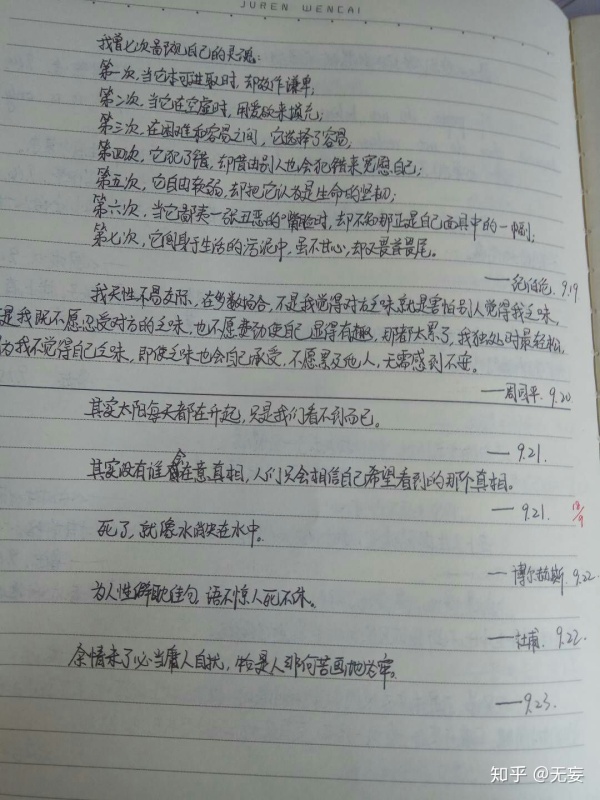 JUREN WENCAI
我曾七次鄙视自己的灵魂:
第一次,当它本可进取时,却故作谦卑;
第二次,当它在空虚时,用爱欲来填充;
第三次,在困难和容易之间,它选择了容易;
第四次,它犯了错,却借由别人也会犯错来宽慰自己;
第五次,它自由软弱,却把它认为是生命的坚韧;
第六次,当它鄙夷一张丑恶的嘴脸时,却不知那正是自己面具中的一副;
第七次,它侧身于生活的污泥中,虽不甘心,却又畏首畏尾。
——纪伯伦 9.19
我天性不易交际,在多数场合,不是我觉得对方乏味,就是害怕别人觉得我乏味,
是我既不愿忍受对方的乏味,也不愿费劲使自己显得有趣,那都太累了,我独处时最轻松,
为我不觉得自己乏味,即使乏味也会自己承受,不愿累及他人,无需感到不安。
——周国平 9.20
其实太阳每天都在升起,只是我们看不到而已。
——9.21.
其实没有谁会在意真相,人们只会相信自己希望看到的那个真相。
——9.21.
死了,就像水消失在水中。
——博尔赫斯 9.22
为人性僻耽佳句,语不惊人死不休。
——杜甫 9.22.
余情未了必当庸人自扰,恰是人那何苦画地为牢。
——9.23.
知乎 @无妄